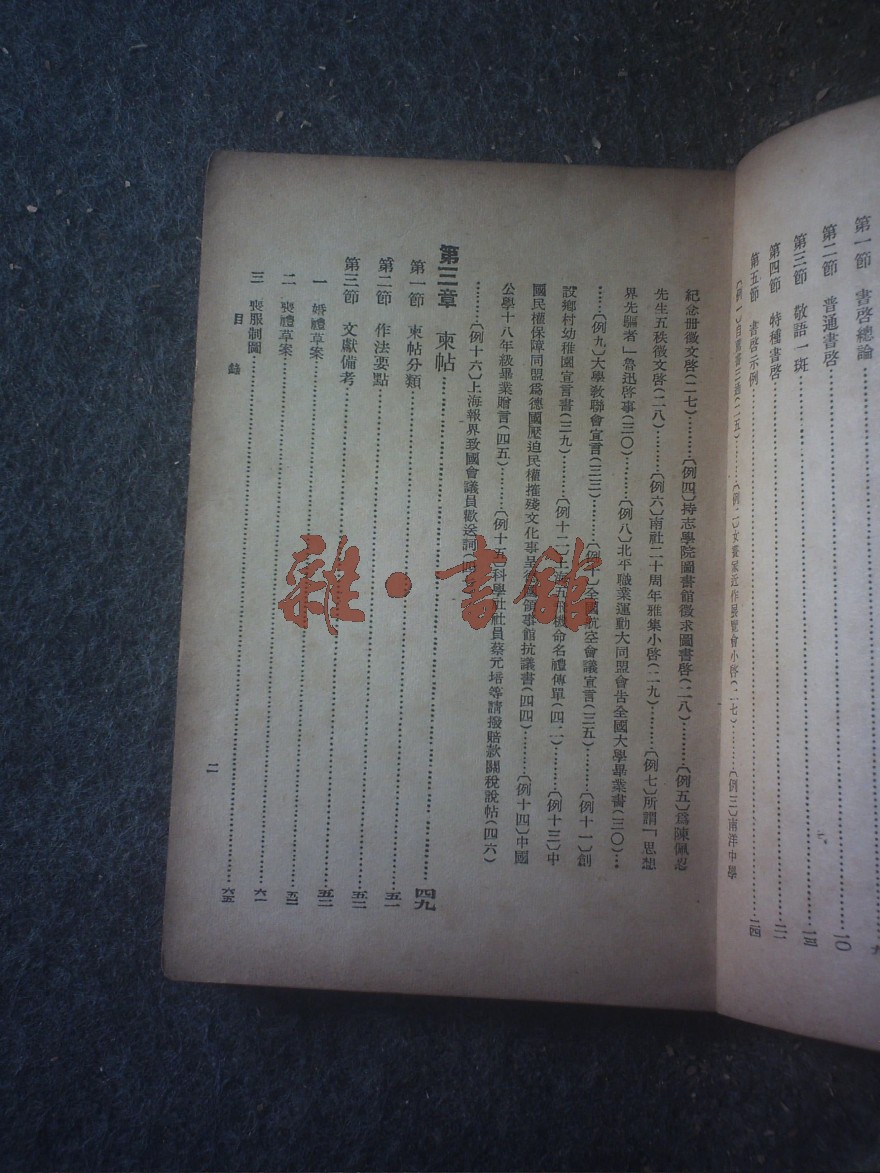 第一節 書啓總論……九
第二節 普通書啓……一〇
第三節 敬語一斑……一三
第四節 特種書啓……二一
第五節 書啓示例……二四
(二五)……(例二)女畫家近作展覽會小啓(二七)……(例三)南洋中學
紀念冊徵文啓(二七)……(例四)持志學院圖書館徵求圖書啓(二八)……(例五)爲陳佩忍
先生五秩徵文啓(二八)……(例六)南社二十周年雅集小啓(二九)……(例七)所謂「思想
界先驅者」魯迅啓事(三〇)……(例八)北平職業運動大同盟會告全國大學畢業書(三〇)…
……(例九)大學敎聯會宣言(三三)……(例十)全國航空會議宣言(三五)……(例十一)創
設鄉村幼稚園宣言書(三九)……(例十二)上海五飛機命名禮傳單(四二)……(例十三)中
國民權保障同盟爲德國壓迫民權摧殘文化事呈德國領事館抗議書(四四)……(例十四)中國
公學十八年級畢業贈言(四五)……(例十五)科學社社員蔡元培等請撥賠款關稅說帖(四六)
……(例十六)上海報界致國會議員歡送詞(四
第三章 柬帖……四九
第一節 柬帖分類……五一
第二節 作法要點……五二
第三節 文獻備考……五三
一 婚禮草案
二 喪禮草案……六一
三 喪服制圖……六五
目錄
二
雜·書館